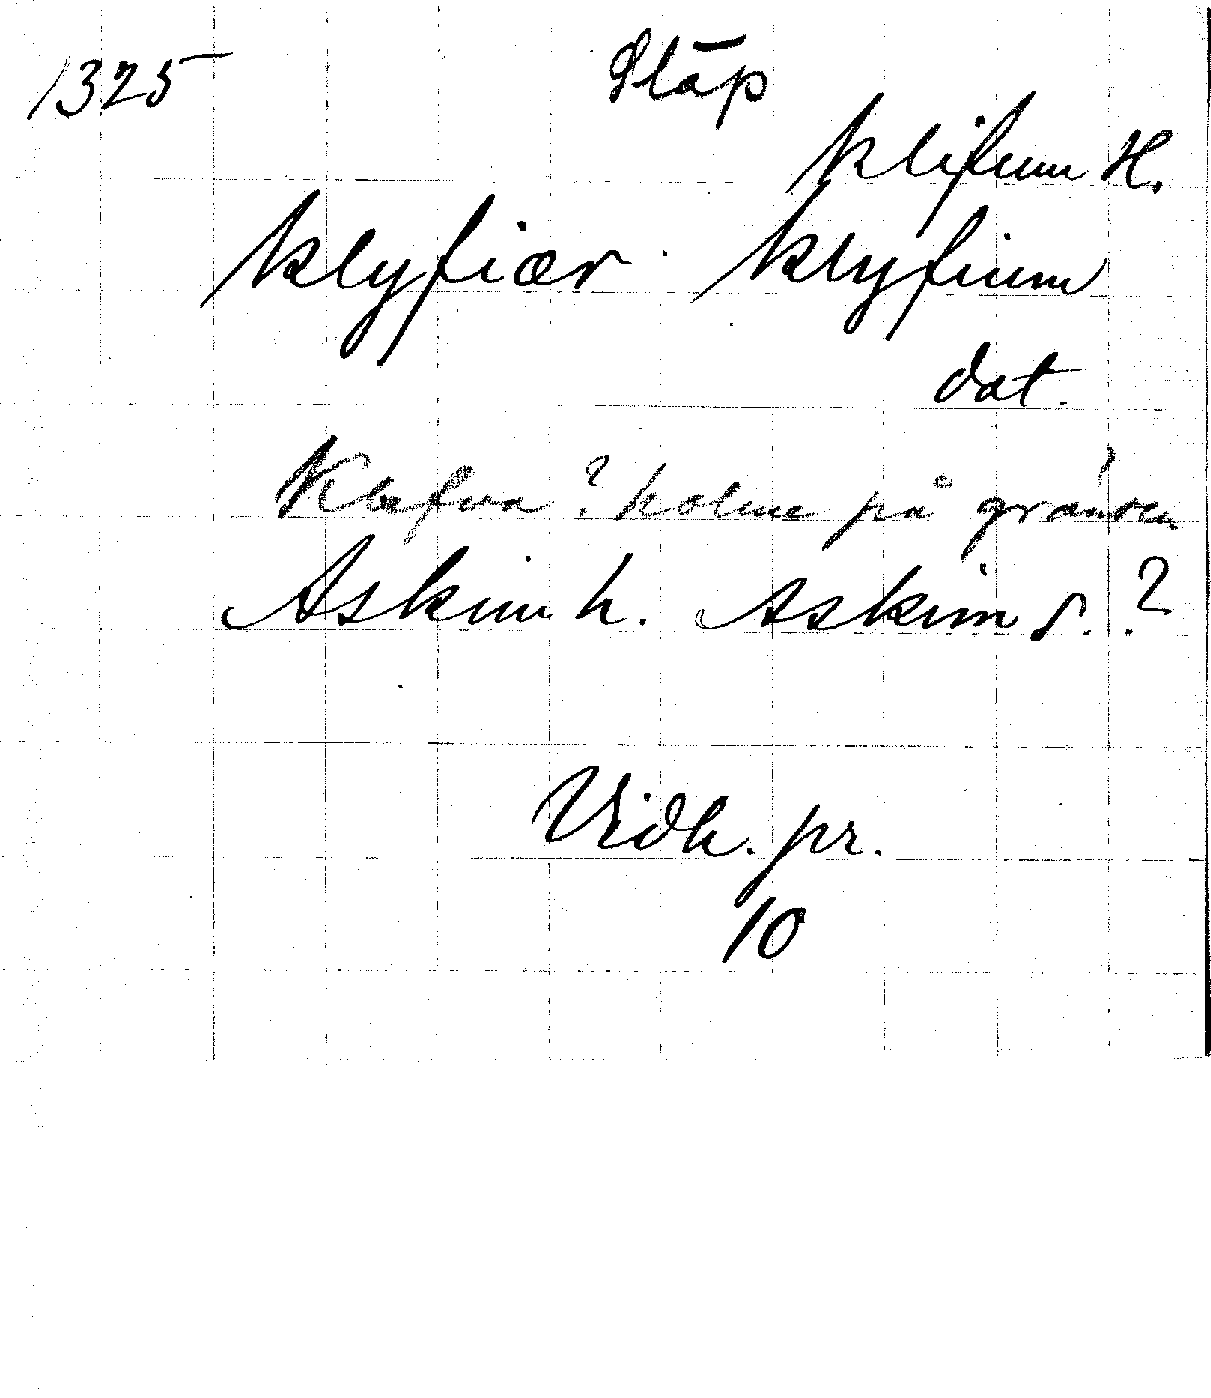 1325 Släp
klifum H.
klyfiær klyfium
dat.
Klefva? holme på gränsen
Askim h. Askim s.?
Vidh. pr.
10